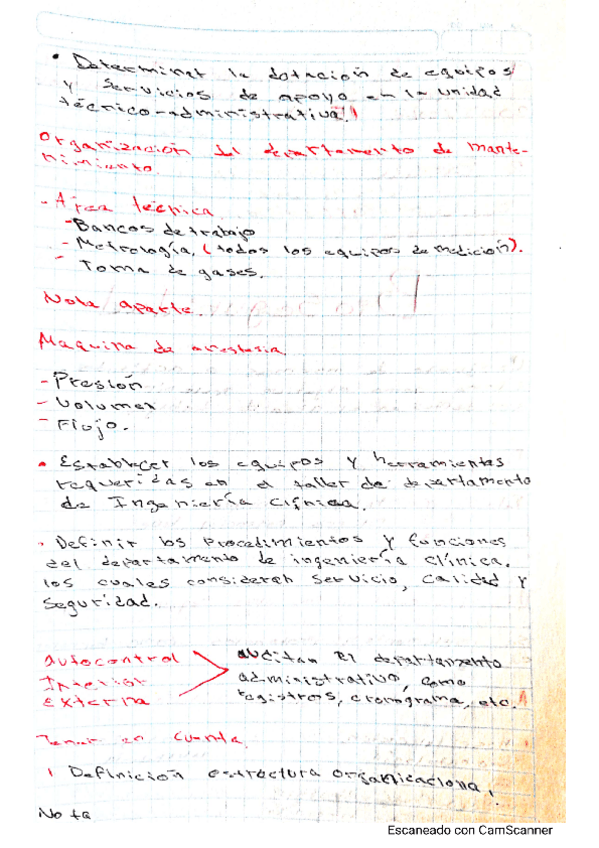 • Determinar la dotación de equipos
y servicios de apoyo en la unidad
técnico-administrativa.
Organización del departamento de mante-
nimiento.
- Area técnica
- Bancos de trabajo
- Metrología, (todos los equipos de medición).
- Toma de gases.
Nota aparte
Maquina de anestesia
- Presión
- Volumen
- Flujo.
• Establecer los equipos y herramientas
requeridas en el taller de departamento
de Ingeniería Clínica.
• Definir los procedimientos y funciones
del departamento de ingeniería clínica.
los cuales consideren servicio, calidad y
seguridad.
Autocontrol
Interior
Externa
auditan el departamento
administrativo, como
registros, cronograma, etc.
Tener en cuenta
1 Definición estructura organicaciona,
Nota
Escaneado con CamScanner